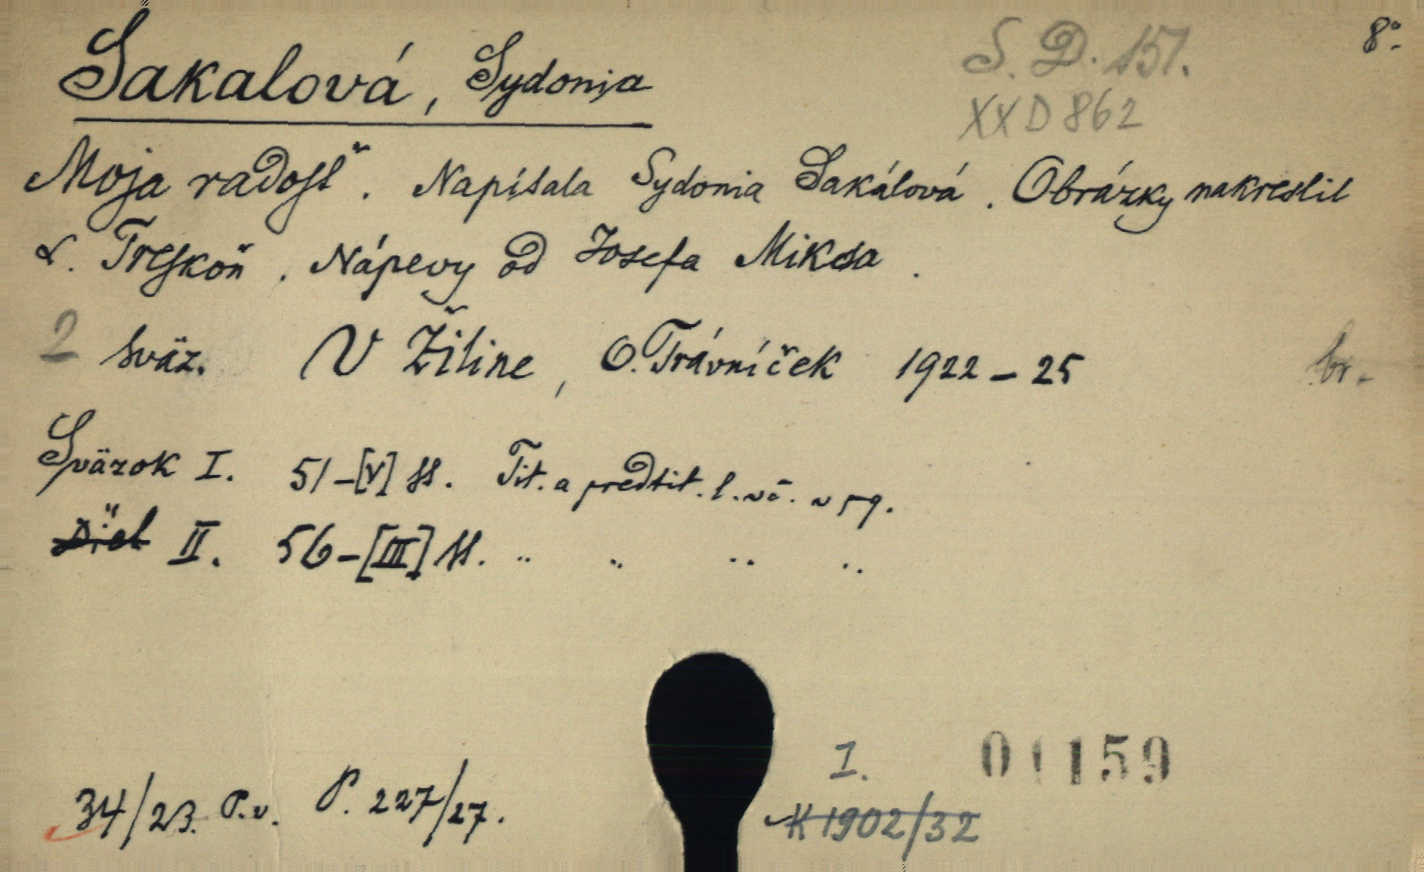 8°.
S. D. 151.
XX D 862
Sakalová, Sydonia
Moja radosť. Napísala Sydonia Sakálová. Obrázky nakreslil
L. Treskoň. Nápevy od Josefa Miksa.
2 sväz. V Žiline, O. Trávníček 1922–25 br.
Sväzok I. 51–[V] ss. Tit. a predtit. l. vč. v pg.
Diel II. 56–[III] ss. „ „ „ „
I. 01159
34/23. P.v. P. 227/27.
K 1902/32